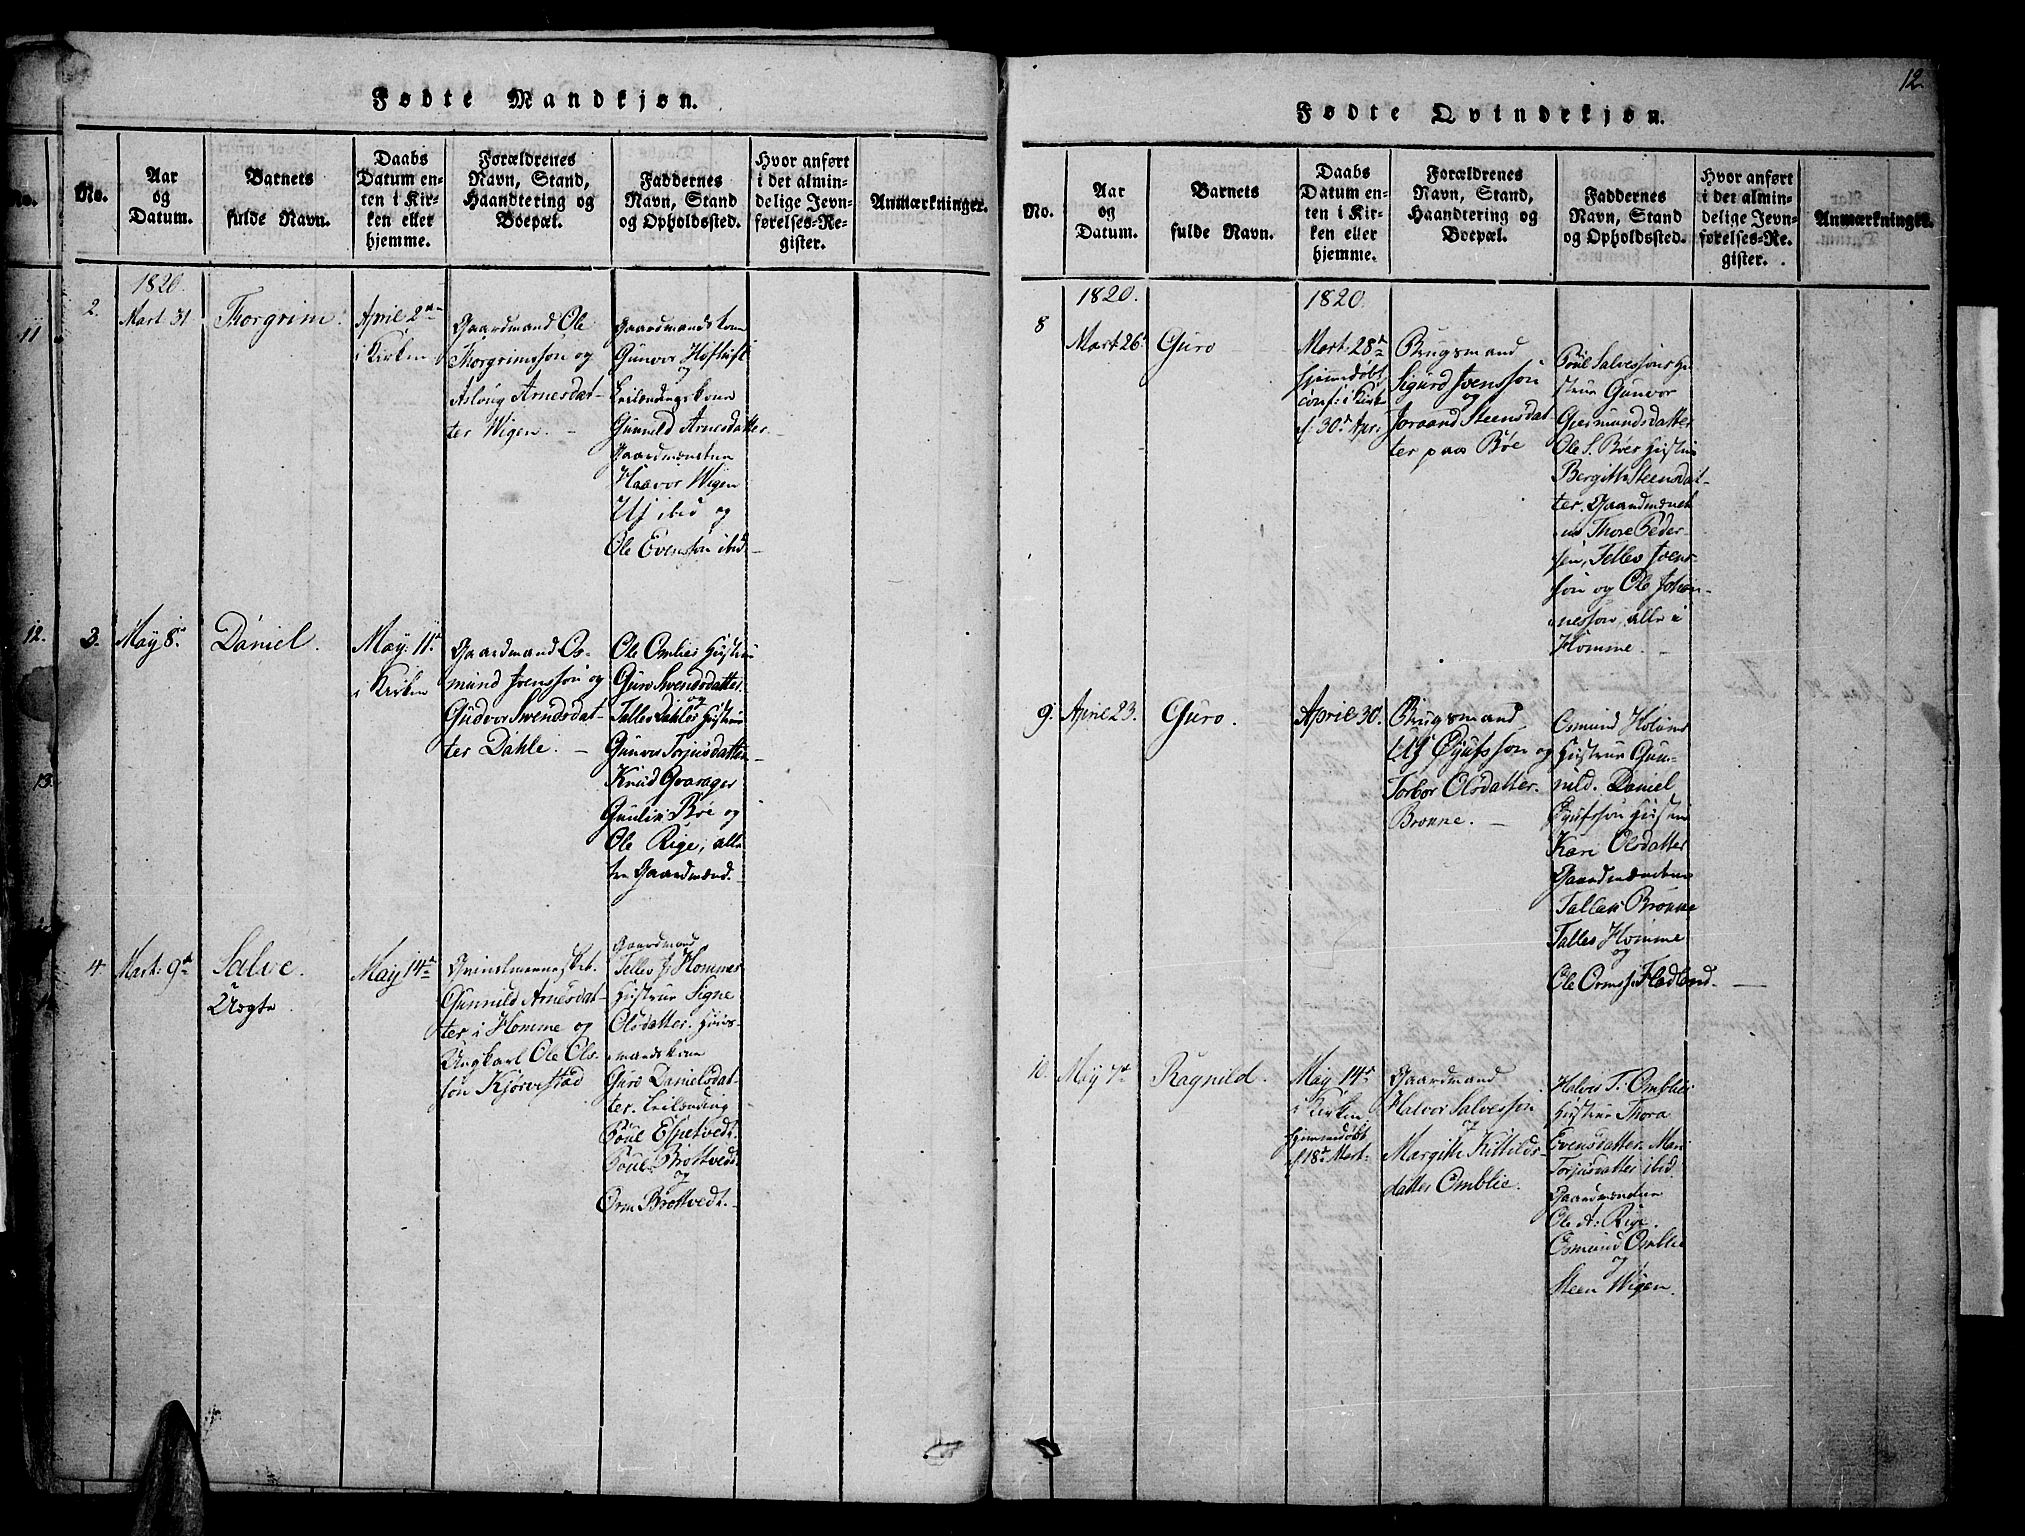 Fødte Mandkjøn.
No.
Aar
og
Datum.
Barnets
fulde Navn.
Daabs
Datum en-
ten i Kir-
ken eller
hjemme.
Forældrenes
Navn, Stand,
Haandtering og
Boepæl.
Faddernes
Navn, Stand
og Opholdssted.
Hvor anført
i det almin-
delige Jevn-
førelses-Re-
gister.
Anmærkninger.
11
12.
13.
2.
1820.
Mart. 31
Thorgrim.
April 2
i Kirken
Gaardmand Ole
Thorgrimssøn og
Asloug Arnesdat-
ter Wigen.
Gaardmandskone
Gunvor Høftuft
og
Leilændingskone
Gunnild Arnesdatter
Gaardmændene
Haavor Wigen
Ulf ibid og
Ole Evenssøn ibid.
3.
May 8
Daniel.
May 11
i Kirken
Gaardmand Os-
mund Ivenssøn og
Gudvor Svendsdat-
ter Dahle.
Ole Omlies Hustrue
Guro Svendsdatter
og
Talles Dahles Hustrue
Gunvor Torjusdatter
Knud Qvarager
Gunlik Bøe og
Ole Rige, alle
tre Gaardmænd.
4.
Mart: 9
Salve.
Uægte
May 14
Qvindmennesket
Gunnild Arnesdat-
ter i Homme og
Ungkarl Ole Ols-
søn Kjørvestad
Gaardmand
Tellev J. Hommes
Hustrue Signe
Olsdatter. Huus-
mandskone
Guro Danielsdat-
ter. Leilænding
Poul Espetvedt
Poul Brottvedt
og
Orm Brottvedt.
12.
Fødte Qvindekjøn.
No.
Aar
og
Datum.
Barnets
fulde Navn.
Daabs
Datum en-
ten i Kir-
ken eller
hjemme.
Forældrenes
Navn, Stand,
Haandtering og
Boepæl.
Faddernes
Navn, Stand
og Opholdssted.
Hvor anført
i det almin-
delige Jevn-
førelses-Re-
gister.
Anmærkninger.
8
1820.
Mart 26
Guro
1820.
Mart: 28
hjemmedøbt
conf: i Kirk
d. 30 Apr:
Brugsmand
Sigurd Ivenssøn
og
Joraand Steensdat-
ter paa Bøe
Poul Salvessøns Hu-
strue Gunvor
Gjermundsdatter
Ole S. Bøes Hustrue
Bergith Steensdat-
ter. Gaardmænde-
ne Thore Peder-
sen, Tellev Ivens-
søn og Ole Johan-
nessøn, alle i
Homme.
9.
April 23.
Guro.
April 30.
Brugsmand
Ulf Øyufssøn og
Torbor Olsdatter
Bronne.
Osmund Holens
Hustrue Gun-
nild. Daniel
Øyufssøn Hustrue
Kari Olsdatter
Gaardmændene
Tallev Brønne
Talles Homme
og
Ole Orms: Fladland.
10.
May 7
Ragnild.
May 14
i Kirken
hjemmedøbt
d. 18 Mart:
Gaardmand
Halvor Salvessøn
og
Margith Kittilds-
datter Omblie.
Halvor T. Omblies
Hustrue Thora
Evensdatter. Mari
Torjusdatter ibid.
Gaardmændene
Ole A: Rige.
Osmund Omblie
og
Steen Wigen.